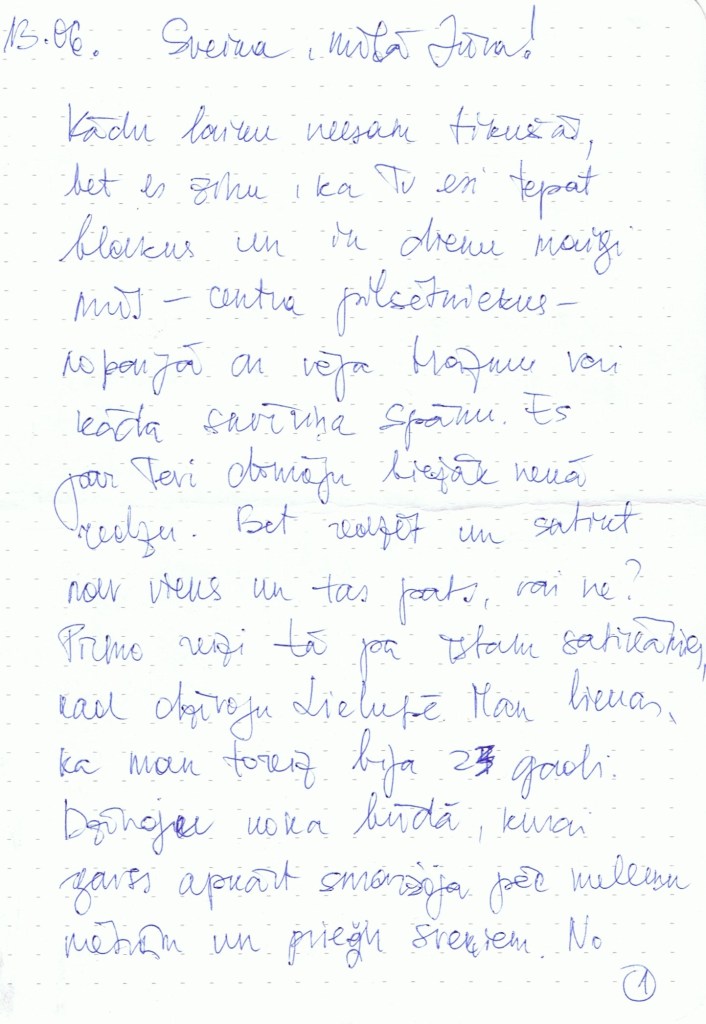 13.06. Sveina, mīļā Jūra!
Kādu laiku neesam tikušās,
bet es zinu, ka Tu esi tepat
blakus un ik dienu maigi
mūs – centra pilsētniekus –
nopaijā ar vēja brāzmu vai
kāda saviļņa spārnu. Es
par Tevi domāju biežāk nekā
redzu. Bet redzēt un satikt
nav viens un tas pats, vai ne?
Pirmo reizi tā pa īstam satikāmies,
kad dzīvoju Lielupē. Man liekas,
ka man toreiz bija 23 gadi.
Dzīvoju koka būdā, kurai
visapkārt smaržoja pēc melleņu
mētrām un priežu sveķiem. No
1